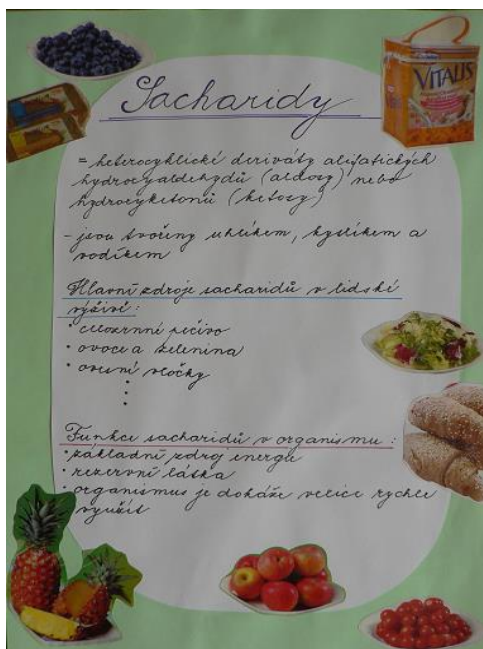 Sacharidy
VITALIS
= heterocyklické deriváty alifatických
hydroxyaldehydů (aldosy) nebo
hydroxyketonů (ketosy)
- jsou tvořeny uhlíkem, kyslíkem a
vodíkem
Hlavní zdroje sacharidů v lidské
výživě:
• celozrnné pečivo
• ovoce a zelenina
• ovesní vločky
Funkce sacharidů v organismu:
• základní zdroj energie
• rezervní látka
• organismus je dokáže velice rychle
využít